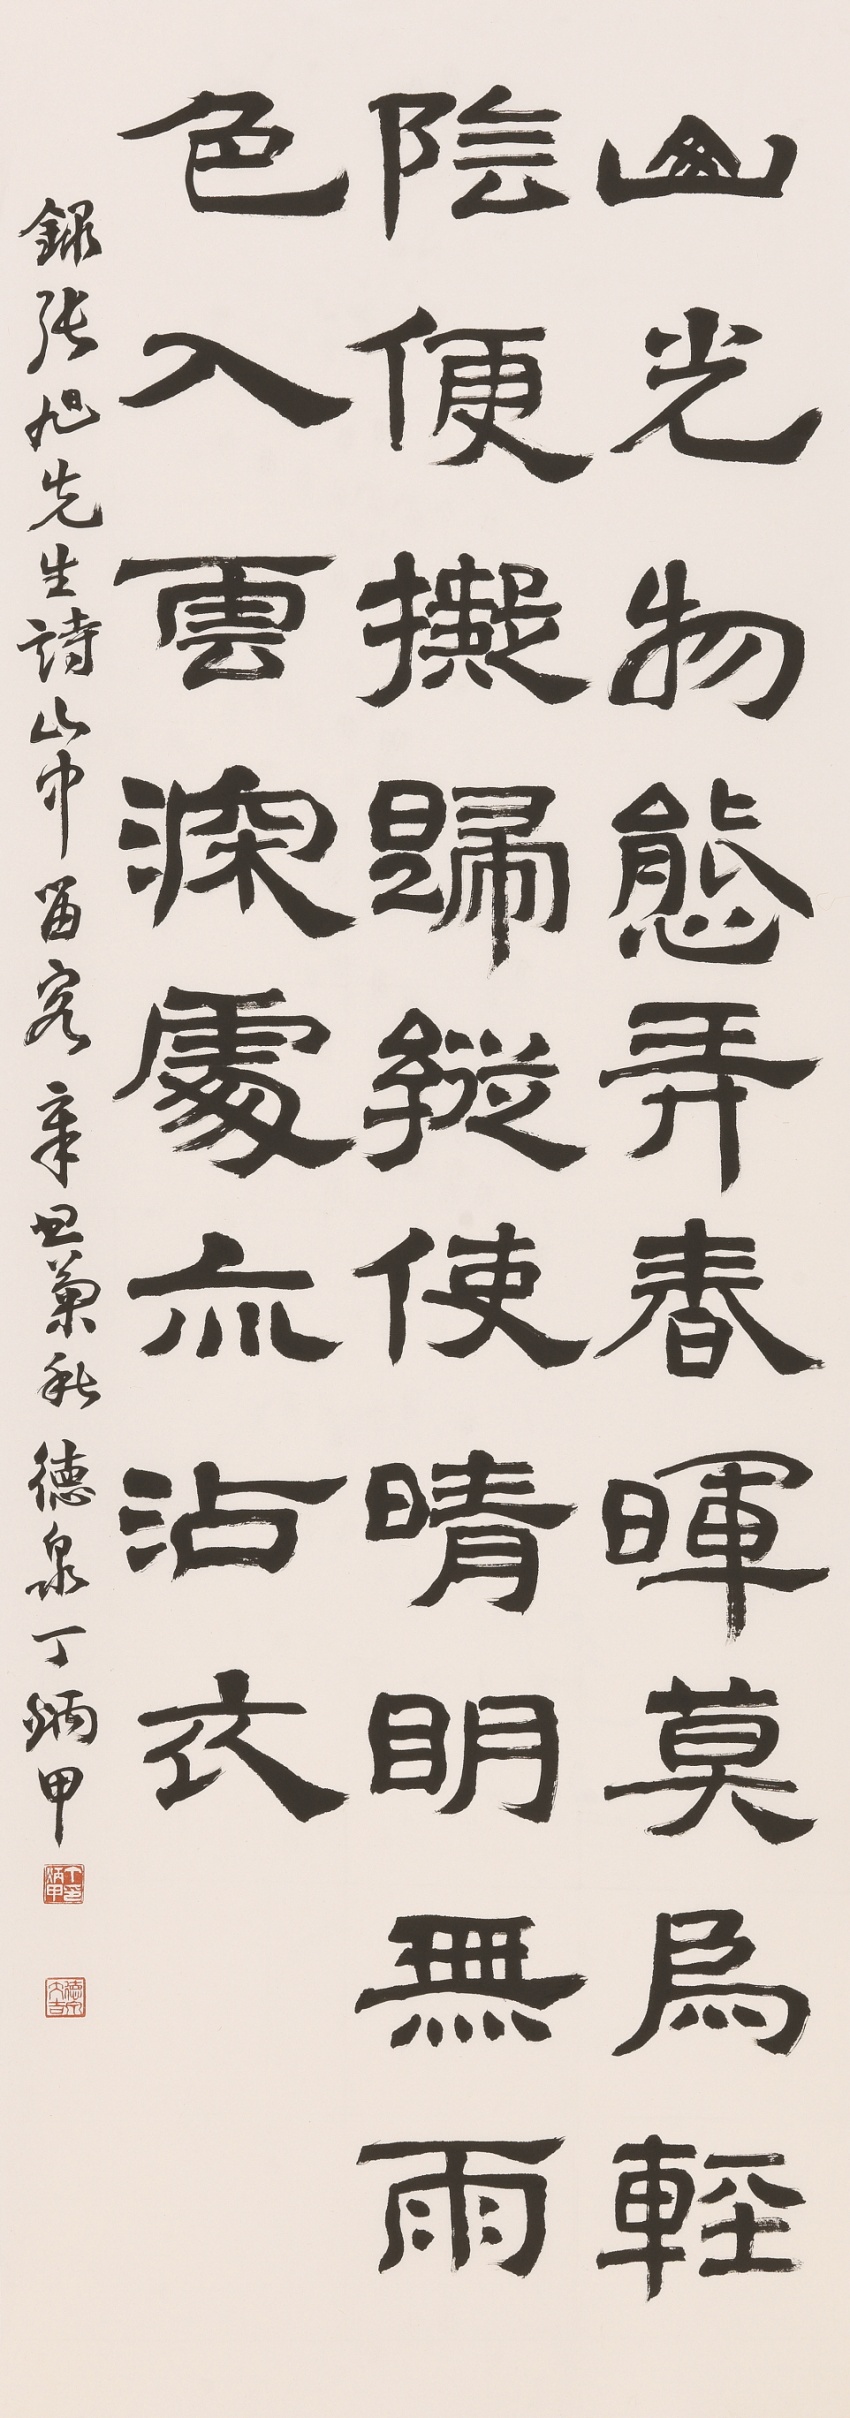 山光物態弄春暉莫為輕
陰便擬歸縱使晴明無雨
色入雲深處亦沾衣
錄張旭先生詩山中留客 辛丑菊秋 德泉丁炳甲
丁炳甲印